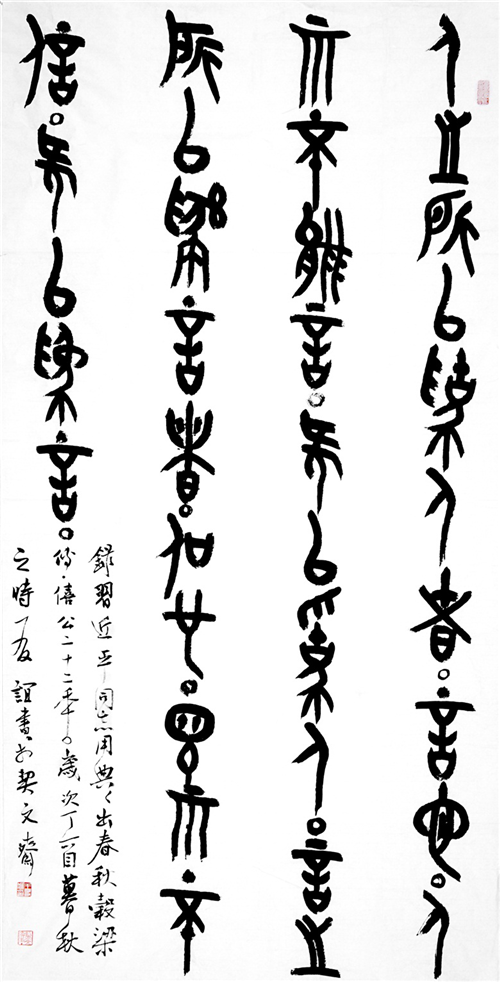 人之所以為人者。言也。人
而不能言。何以為人。言之
所以為言者。信也。言而不
信。何以為言。
錄習近平同志用典、出春秋穀梁
傳·僖公二十二年。歲次丁酉暮秋
之時書於契文齋